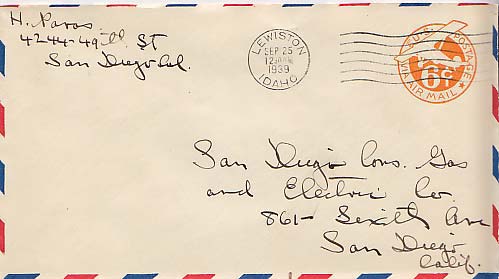 H. Navas
4244-49th ST
San Diego Cal.
LEWISTON
SEP 25
12 30 PM
1939
IDAHO
U.S. POSTAGE
6¢
VIA AIR MAIL
San Diego Cons. Gas
and Electric Co.
861- Sixth Ave
San Diego
Calif.